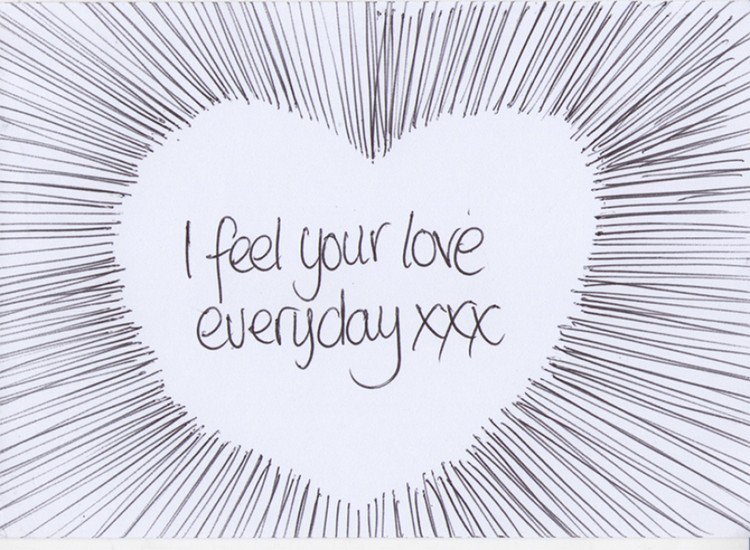 I feel your love
everyday xxx